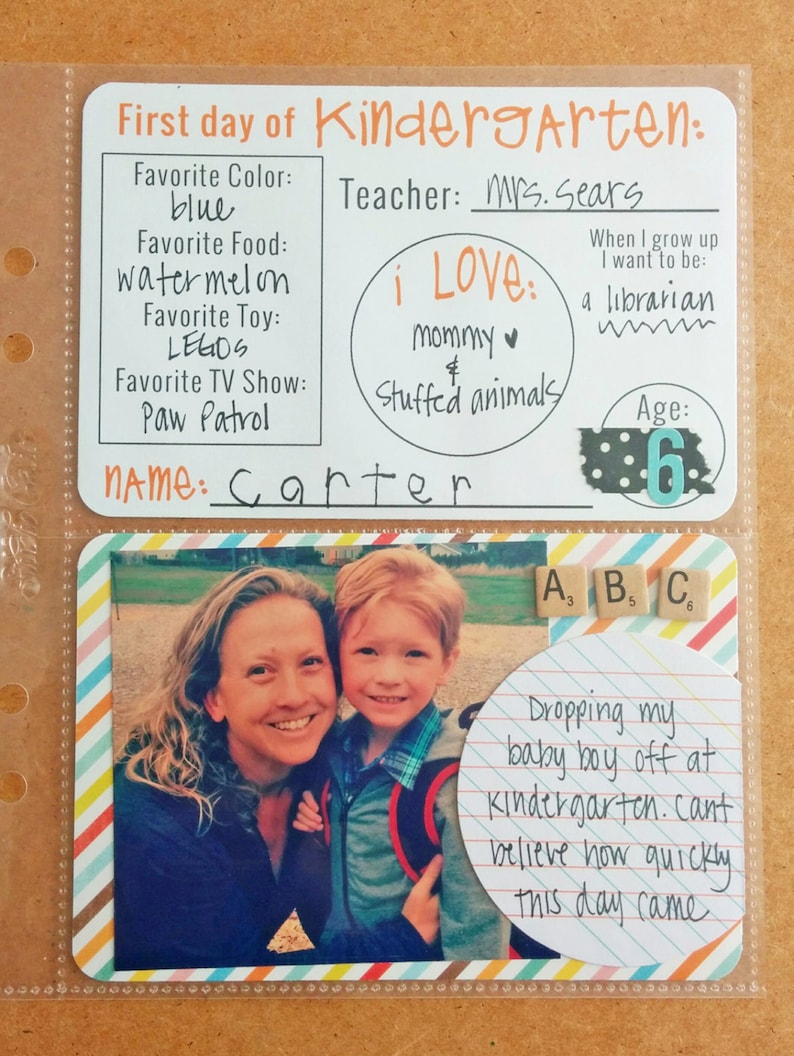 First day of Kindergarten:
Favorite Color:
blue
Favorite Food:
watermelon
Favorite Toy:
LEGOs
Favorite TV Show:
Paw Patrol
Teacher: Mrs. Sears
i LOVE:
mommy ♥
&
stuffed animals
When I grow up
I want to be:
a librarian
Age:
6
NAME: carter
A3 B5 C6
Dropping my
baby boy off at
kindergarten. Cant
believe how quickly
this day came